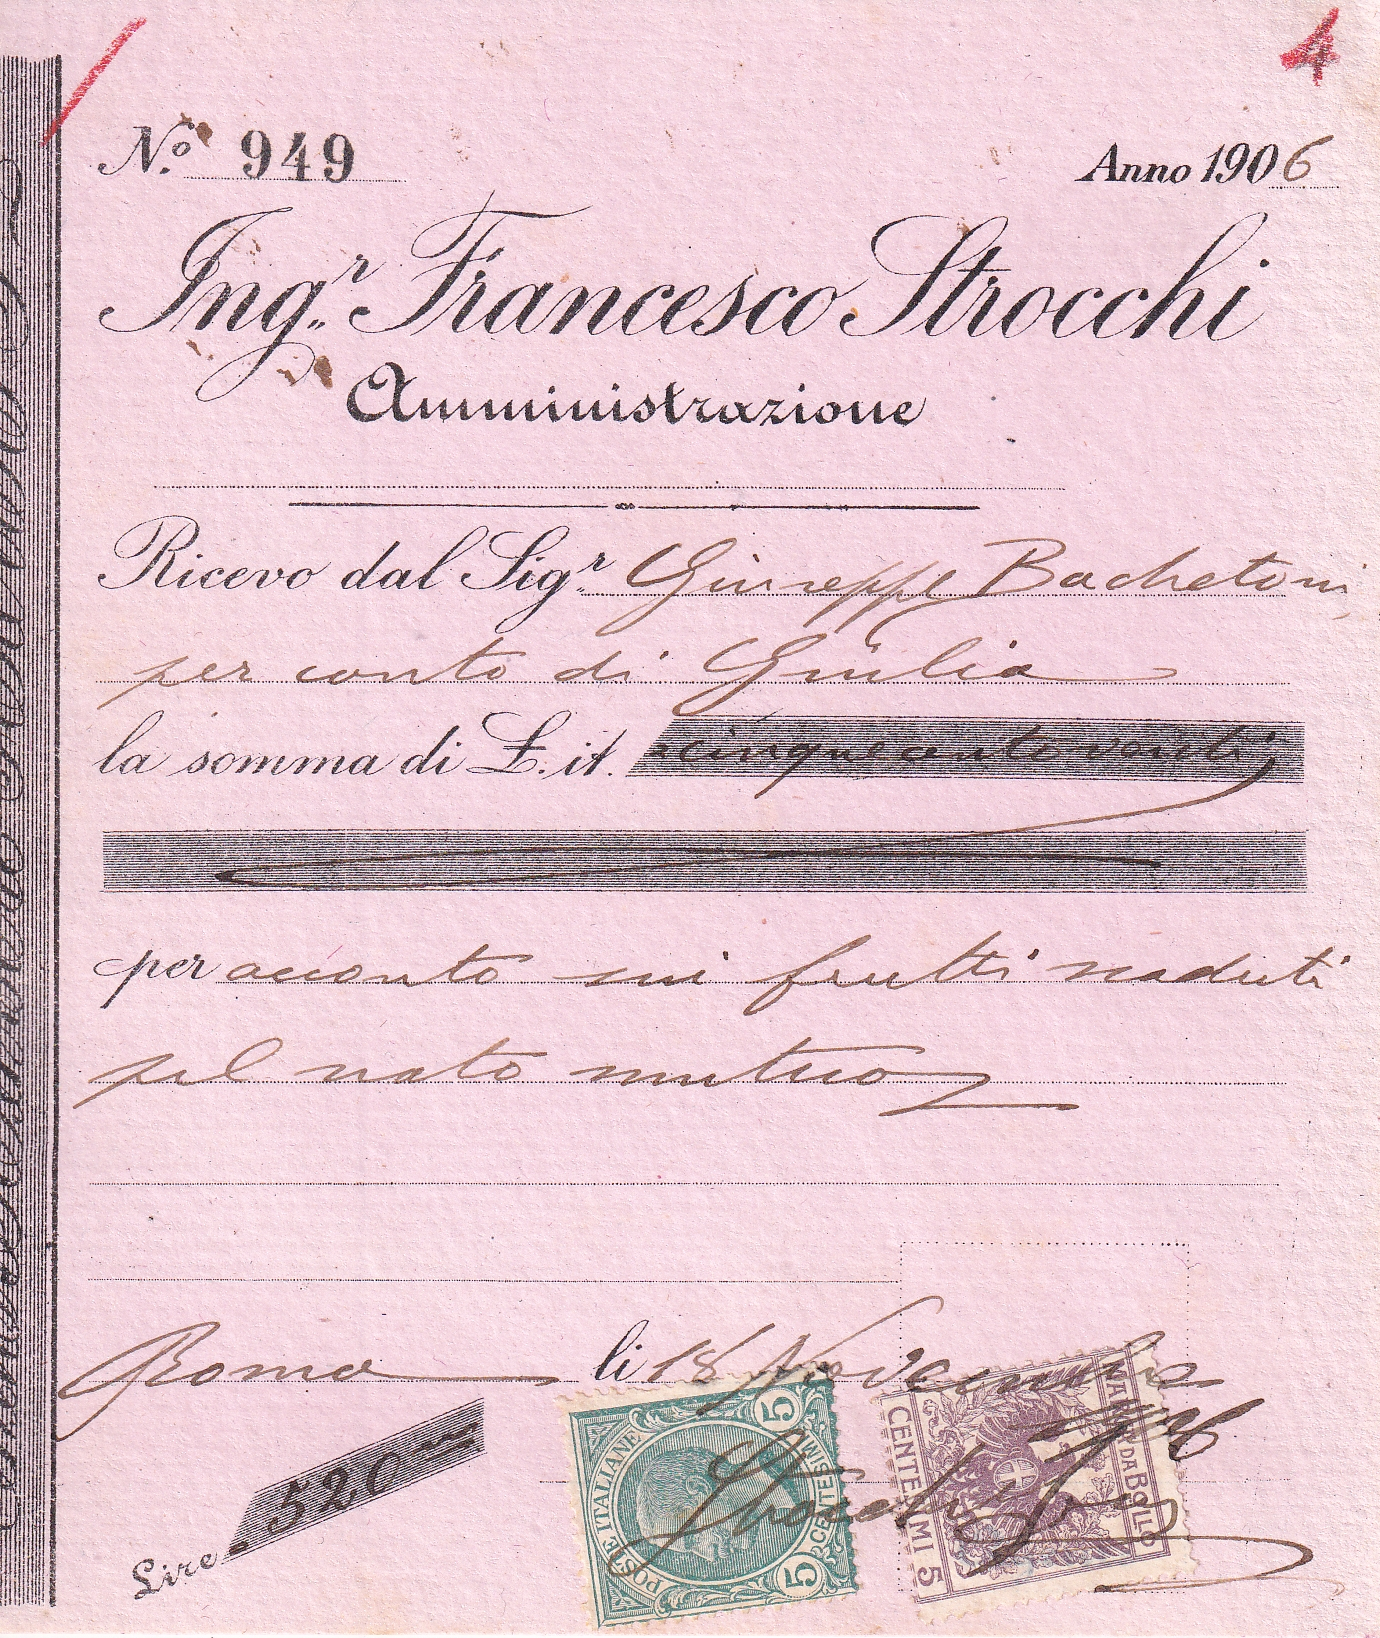 4
N.º 949
Anno 1906
Ing.r Francesco Strocchi
Amministrazione
Ricevo dal Sig.r Giuseppe Bachetoni
per conto di Giulia
la somma di £. it. cinquecentoventi
per acconto sui frutti scaduti
pel noto mutuo
Roma li 18 Novembre
1906
Lire 520
POSTE ITALIANE
CENTESIMI
5
5
MARCA DA BOLLO
CENTESIMI 5
Strocchi